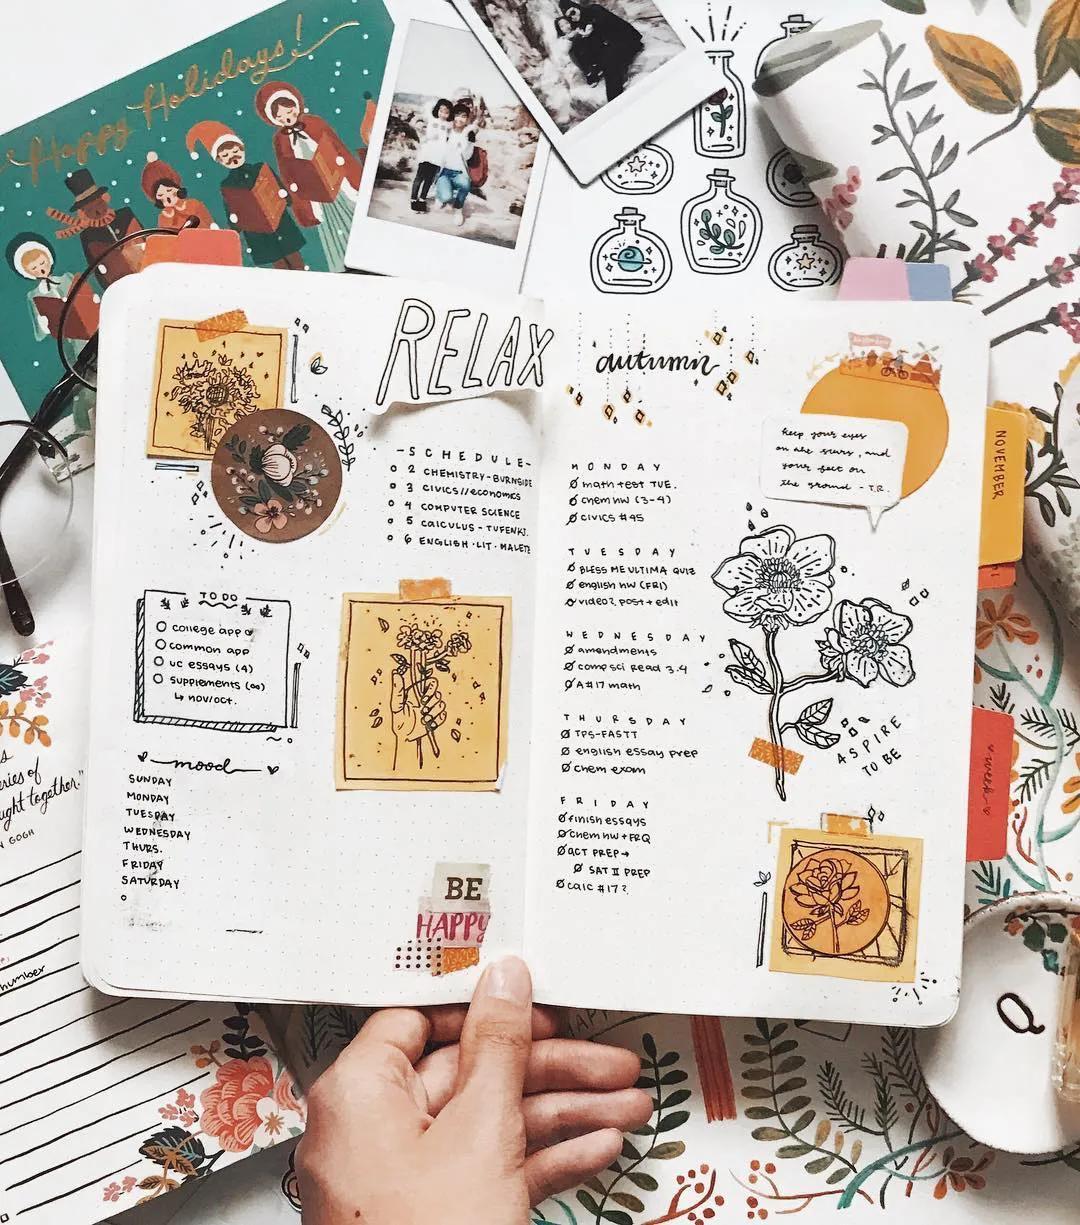 Happy Holidays!
RELAX
-SCHEDULE-
2 CHEMISTRY-BURNSIDE
3 CIVICS//ECONOMICS
4 COMPUTER SCIENCE
5 CALCULUS - TUFENKJ.
6 ENGLISH·LIT·MALETE
TO DO
college app
common app
UC essays (4)
supplements (∞)
↳ NOV/OCT.
mood
SUNDAY
MONDAY
TUESDAY
WEDNESDAY
THURS.
FRIDAY
SATURDAY
BE
HAPPY
autumn
MONDAY
math test TUE.
chem HW (3-4)
CIVICS #45
TUESDAY
BLESS ME ULTIMA QUIZ
english HW (FRI)
video? post + edit
WEDNESDAY
amendments
comp sci Read 3.4
A#17 math
THURSDAY
TPS-FASTT
english essay prep
chem exam
FRIDAY
finish essays
chem HW + FRQ
ACT PREP→
SAT II PREP
calc #17?
keep your eyes
on the stars, and
your feet on
the ground - T.R.
ASPIRE
TO BE
NOVEMBER
week
ries of
ught together."
GOGH
number